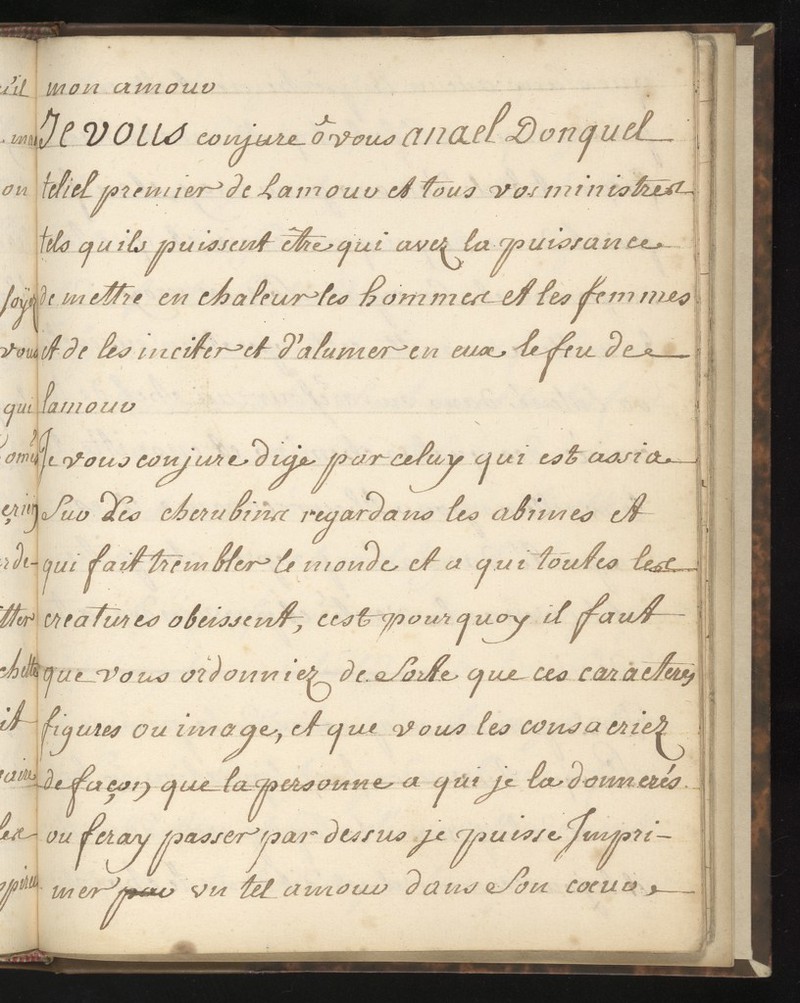 mon amour
Je vous conjure ô vous anael Donquel
teliel premier de Lamour et tous vos ministres
tels quils puissent être qui avez la puissance
de mettre en chaleur les hommes et les femmes
et de les inciter et d'alumer en eux le feu de
lamour
Je vous conjure dige par celuy qui est assia
Sur Des cherubins regardans les abimes et
qui fait trembler le monde et a qui toutes les
creatures obeissent, cest pourquoy il faut
que vous ordonniez de Sorte que ces caracteres
figures ou image, et que vous les consacriez
de façon que la personne a qui je la donnerés
ou feray passer par dessus je puisse Impri-
mer par un tel amour dans Son coeur